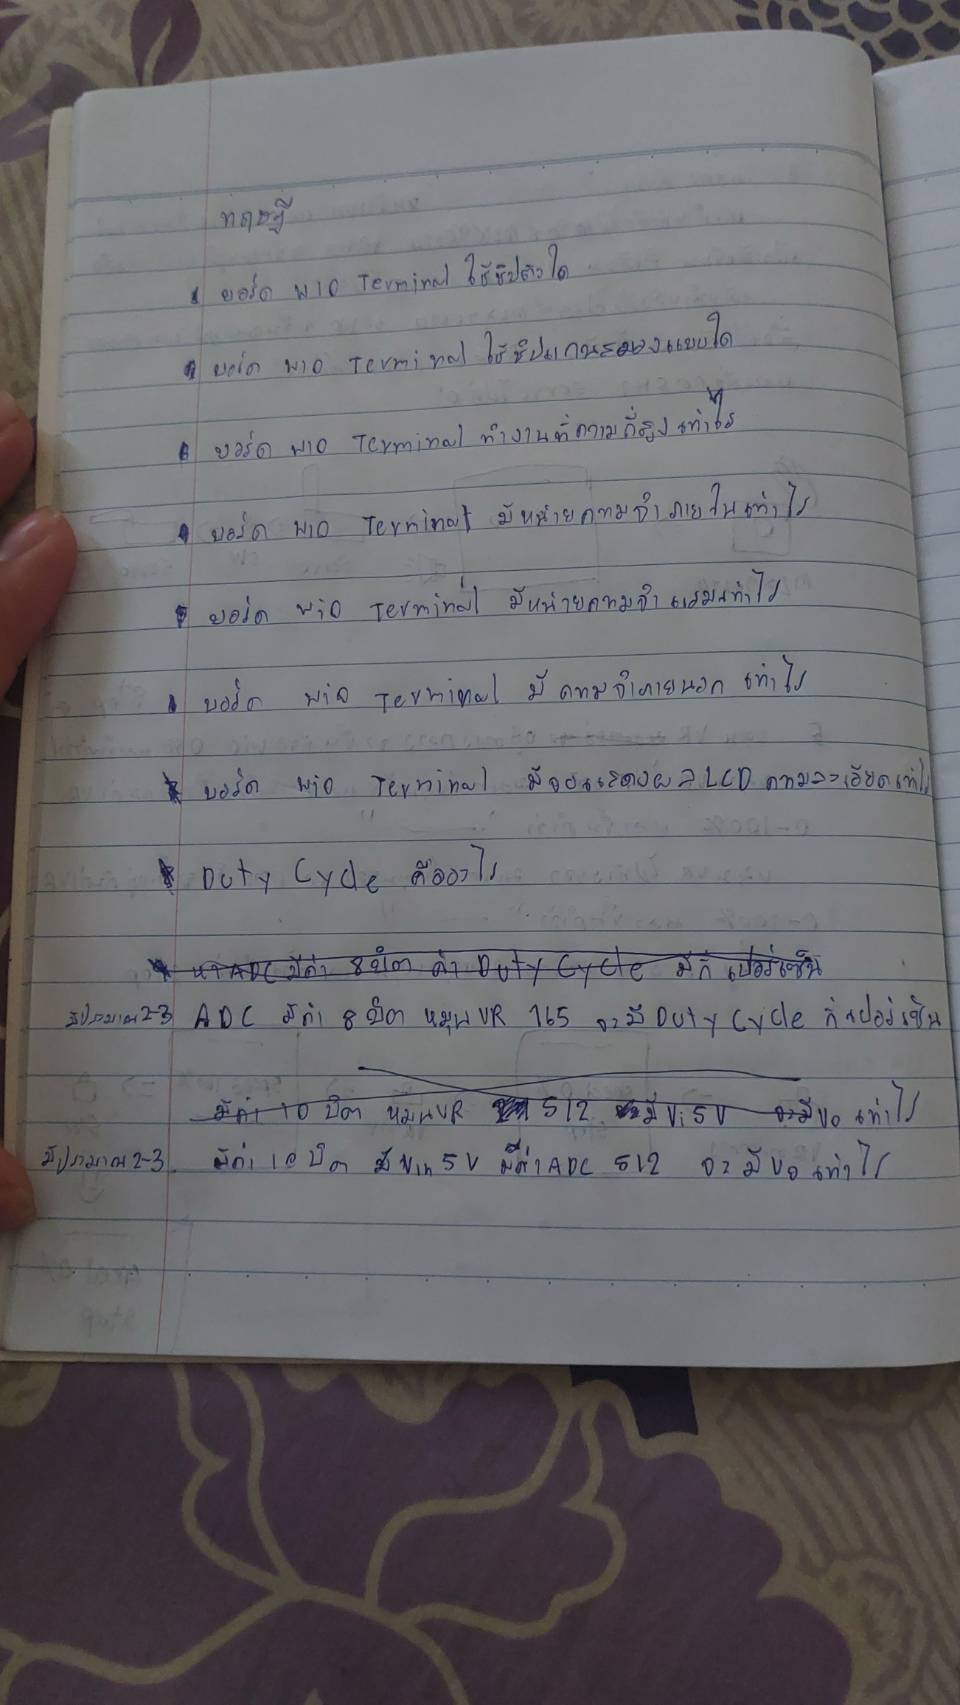 ทฤษฎี
บอร์ด WIO Terminal ใช้ชิปตัวใด
บอร์ด WIO Terminal ใช้ชิปแกนสมองแบบใด
บอร์ด WIO Terminal ทำงานที่ความถี่สูงเท่าไร
บอร์ด WIO Terminal มีหน่วยความจำภายในเท่าไร
บอร์ด WiO Terminal มีหน่วยความจำแรมเท่าไร
บอร์ด WiO Terminal มีความจำภายนอกเท่าไร
บอร์ด WiO Terminal มีจอแสดงผล LCD ความละเอียดเท่าไร
Duty Cycle คืออะไร
ADC มีค่า 8 บิต ค่า Duty Cycle มีกี่เปอร์เซ็น
มีประมาณ 2-3 ADC มีค่า 8 บิต หมุน VR 165 จะมี Duty Cycle กี่เปอร์เซ็น
มีค่า 10 บิต หมุน VR 512 มี Vi 5V จะมี Vo เท่าไร
มีประมาณ 2-3 มีค่า 10 บิต มี Vin 5V มีค่า ADC 512 จะมี Vo เท่าไร